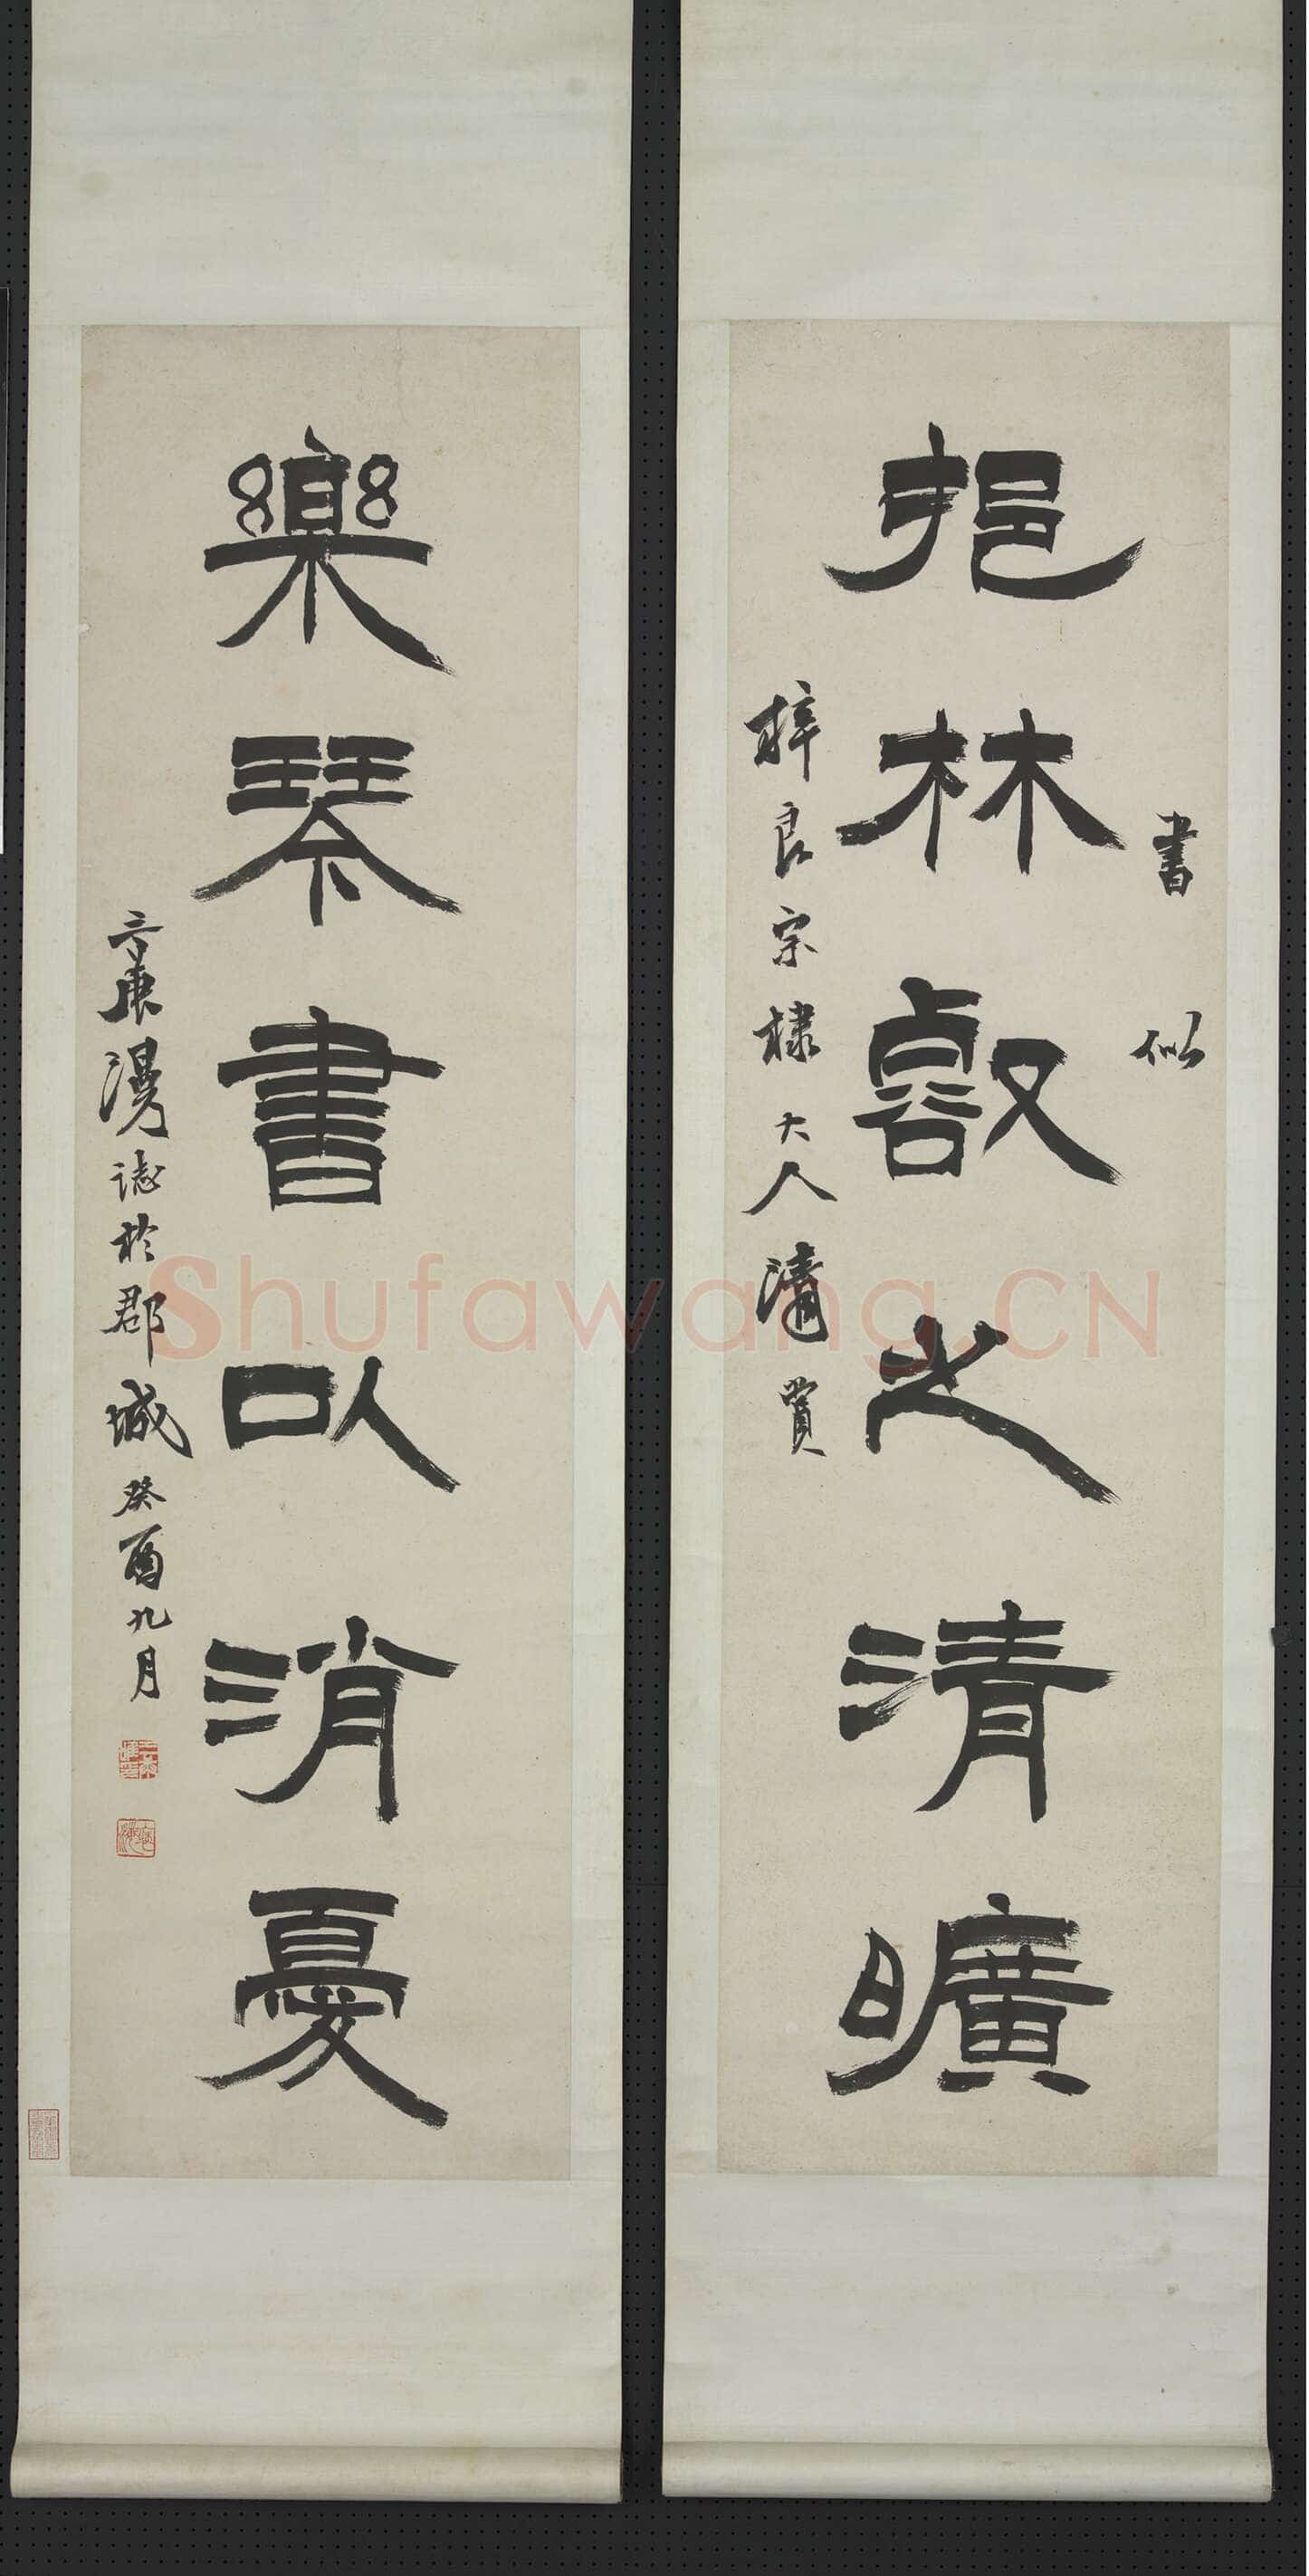 書似
挹林壑之清曠
梓良宗棣大人清賞
樂琴書以消憂
漫誌於郡城癸酉九月
Shufawang.CN